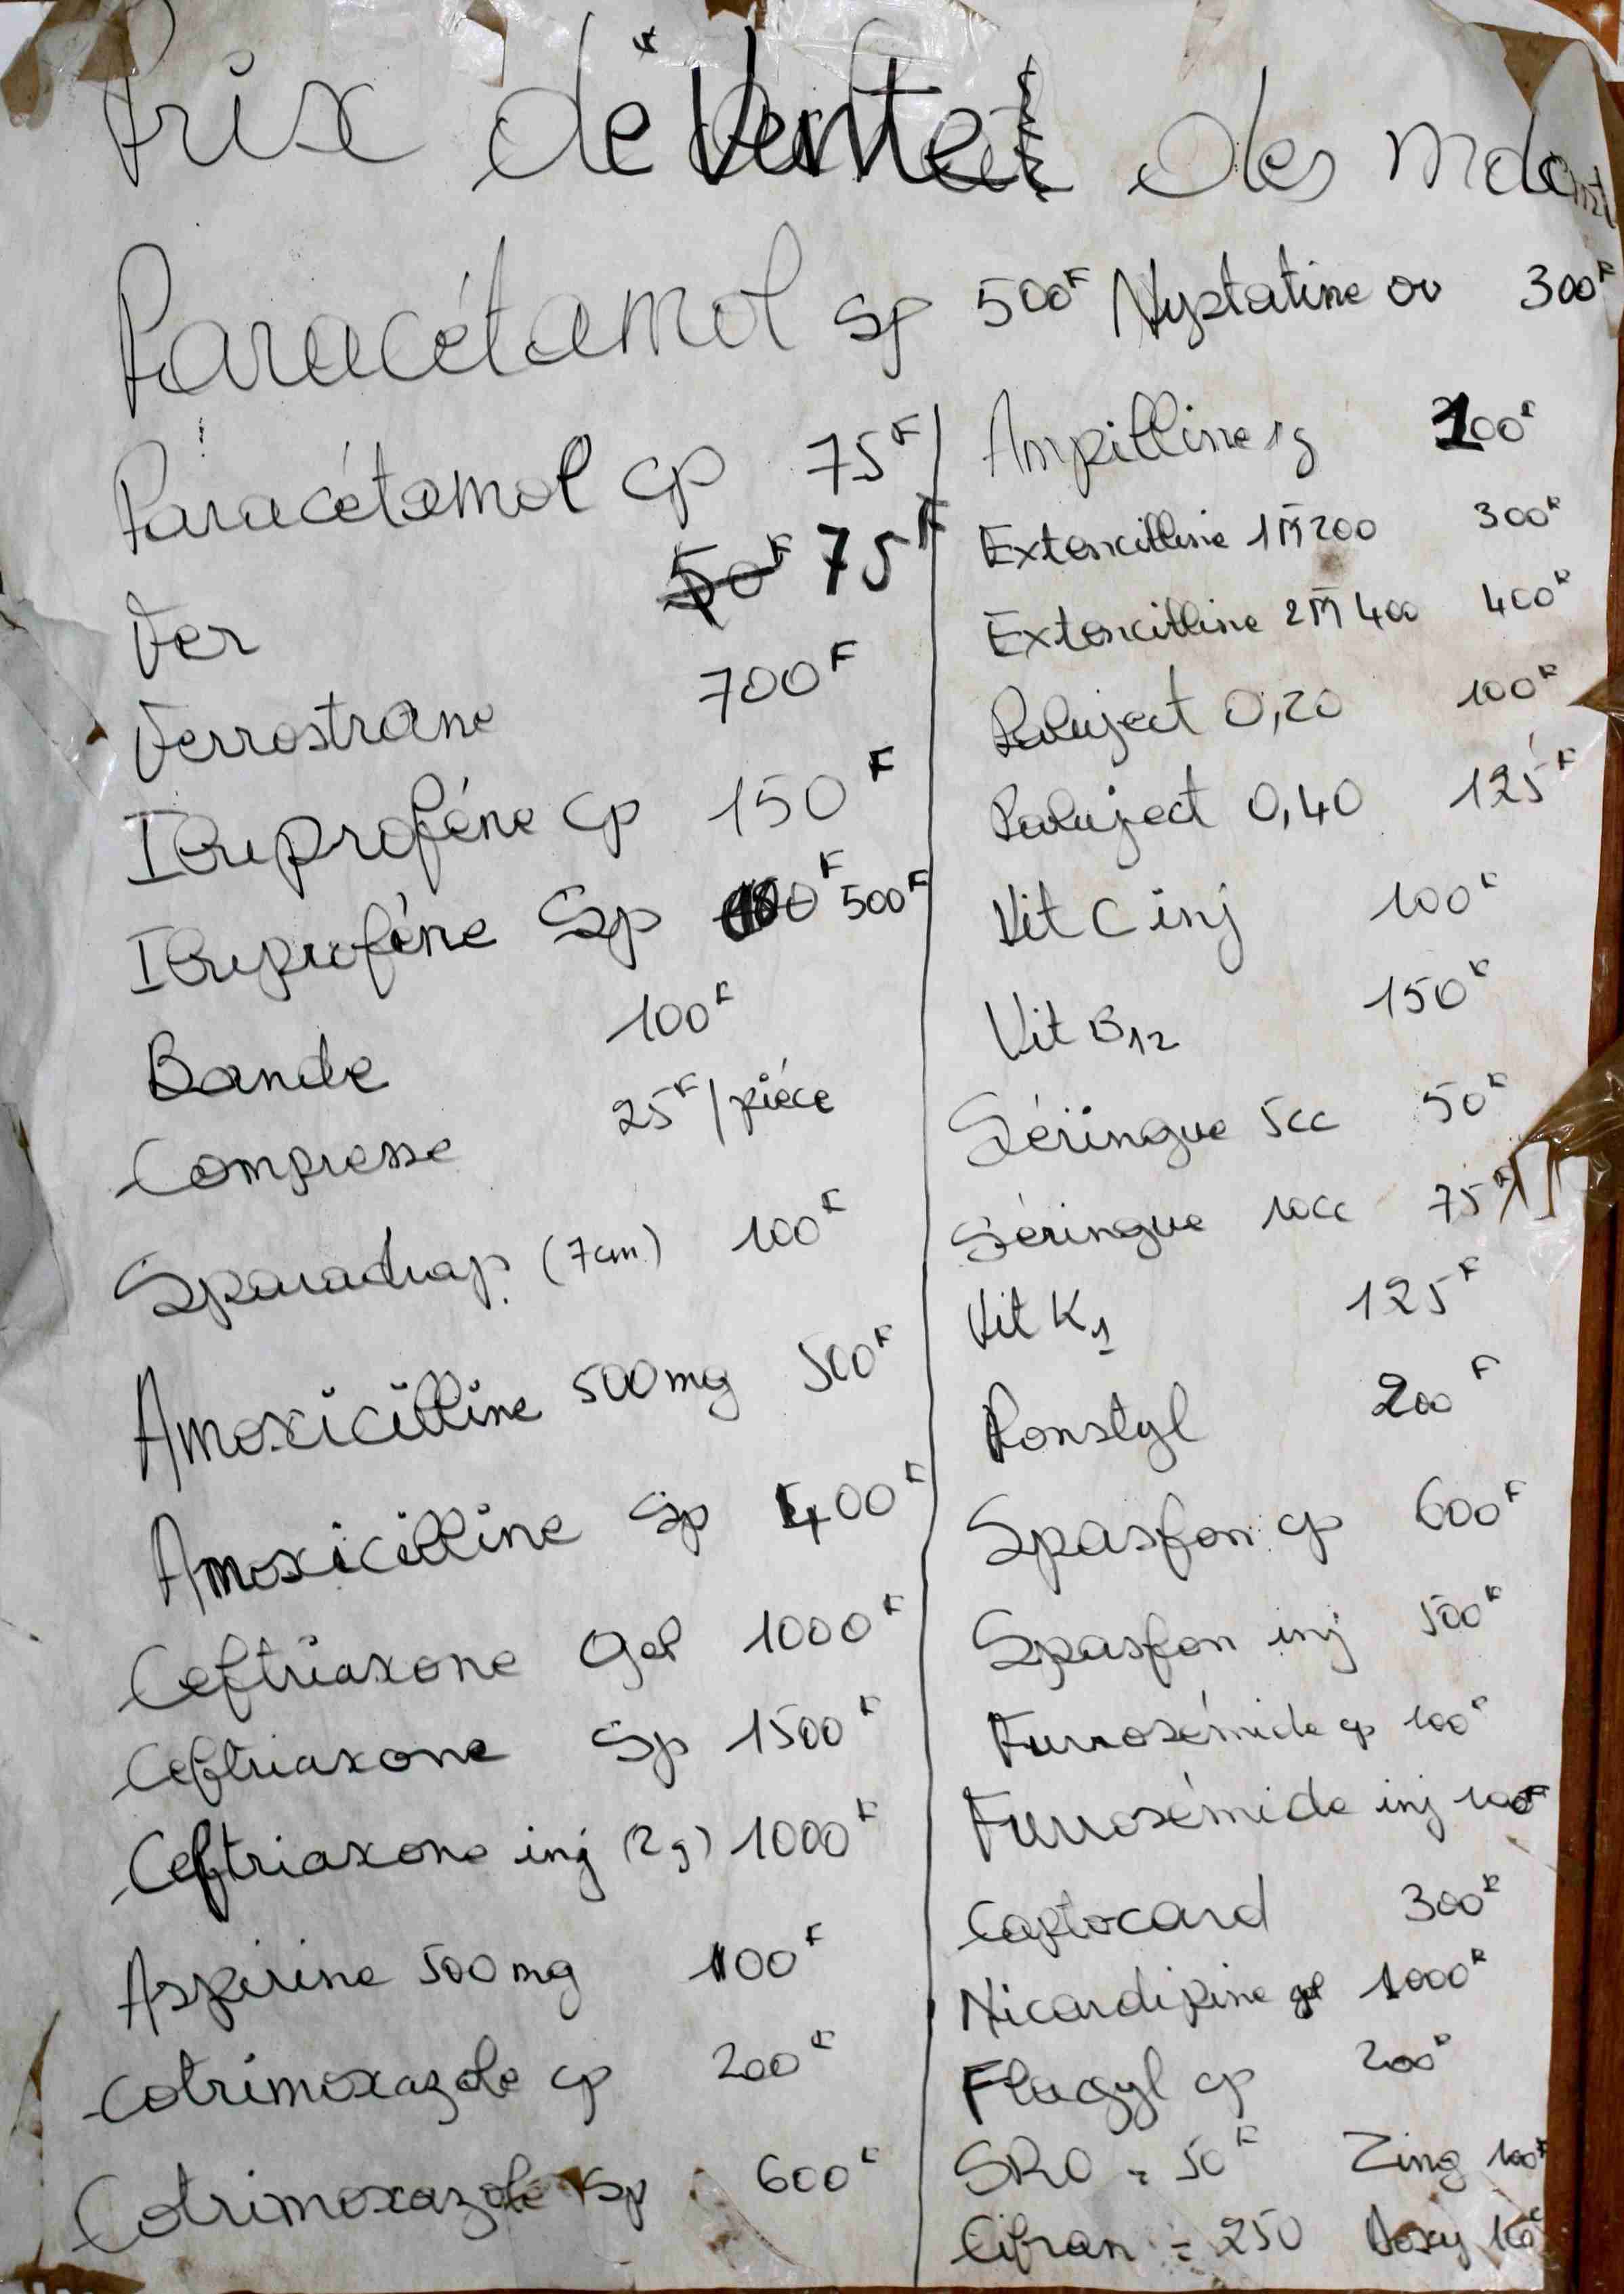 Prix de Vente des mdcmt
Paracétamol sp 500F
Paracétamol cp 75F
Fer 50F 75F
Ferrostrane 700F
Ibuproféne cp 150F
Ibuproféne Sp 500F
Bande 100F
Compresse 25F/piéce
Sparadrap (7cm) 100F
Amoxicilline 500mg 500F
Amoxicilline Sp 400F
Ceftriaxone Gel 1000F
Ceftriaxone Sp 1500F
Ceftriaxone inj (2g) 1000F
Aspirine 500mg 100F
Cotrimoxazole cp 200F
Cotrimoxazole Sp 600F
Nystatine ov 300F
Ampilline 1g 100F
Extencilline 1M200 300F
Extencilline 2M400 400F
Paluject 0,20 100F
Paluject 0,40 125F
Vit C inj 100F
Vit B12 150F
Séringue 5cc 50F
Séringue 10cc 75F
Vit K1 125F
Ponstyl 200F
Spasfon cp 600F
Spasfon inj 500F
Furrosémide cp 100F
Furrosémide inj 100F
Captocard 300F
Nicardipine gel 1000F
Flagyl cp 200F
SRO = 50F Zing 100F
Cifran = 250 Doxy 100F